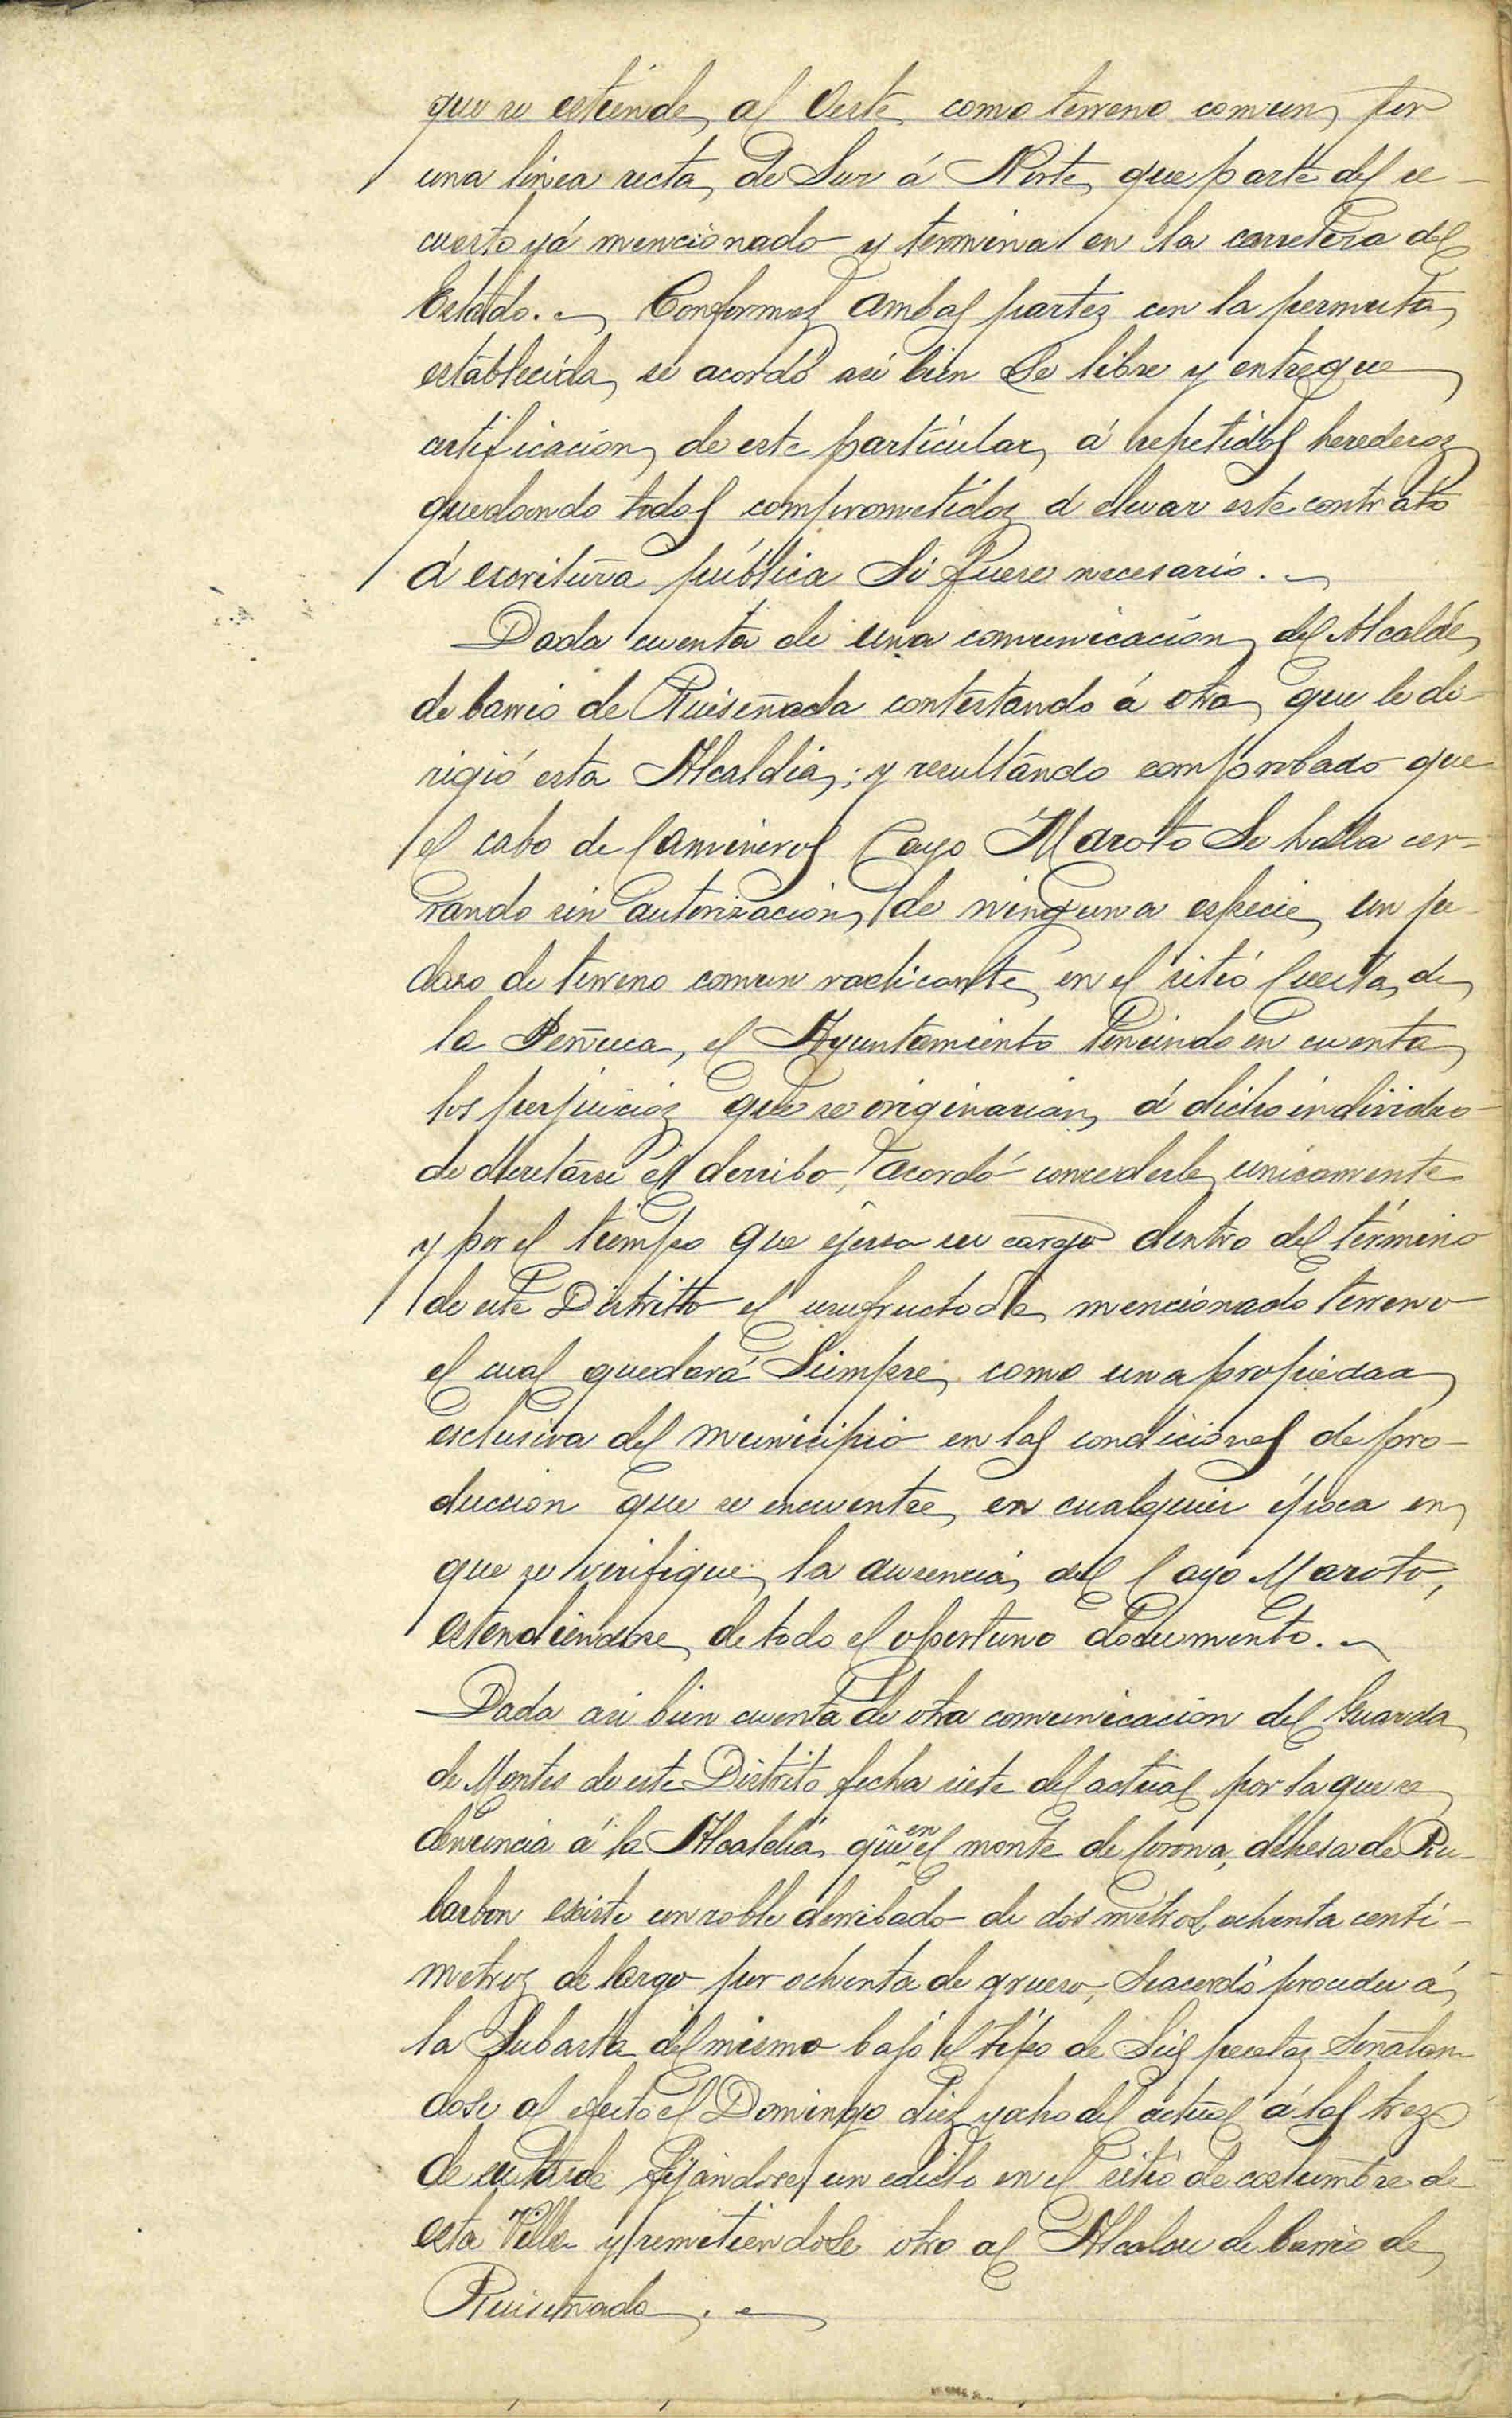 que se estiende al Oeste como terreno comun, por
una linea recta, de Sur á Norte, que parte del re-
cuesto yá mencionado y termina en la carretera del
Estado. Conformes ambas partes con la permuta
establecida, se acordó asi bien se libre y entregue
certificacion de este particular, á repetidos herederos
quedando todos comprometidos á elevar este contrato
á escritura pública si fuere necesario.
Dada cuenta de una comunicacion del Alcalde
de barrio de Ruiseñada contestando á otra que le di-
rigió esta Alcaldia; y resultando comprobado que
el cabo de Camineros Cayo Maroto se halla cer-
rando sin autorizacion de ninguna especie, un pe-
dazo de terreno comun radicante en el sitio Cuesta de
la Peñuca, el Ayuntamiento teniendo en cuenta
los perjuicios que se originarian á dicho individuo
de decretarse el derribo, acordó concederle unicamente
y por el tiempo que ejerza su cargo dentro del término
de este Distrito el usufructo de mencionado terreno
el cual quedará siempre como una propiedad
esclusiva del municipio en las condiciones de pro-
duccion que se encuentre, en cualquier época en
que se verifique la ausencia del Cayo Maroto,
estendiendose de todo el oportuno documento.
Dada asi bien cuenta de otra comunicacion del Guarda
de Montes de este Distrito fecha siete del actual por la que se
denuncia á la Alcaldia, que en el monte de Corona, dehesa de Ru-
barbon existe un roble derribado de dos metros ochenta centi-
metros de largo por ochenta de grueso, se acordó proceder á
la subasta del mismo bajo el tipo de seis pesetas señalan-
dose al efecto el Domingo diez y ocho del actual á las tres
de su tarde fijandose un edicto en el sitio de costumbre de
esta Villa y remitiendose otro al Alcalde de barrio de
Ruiseñada.